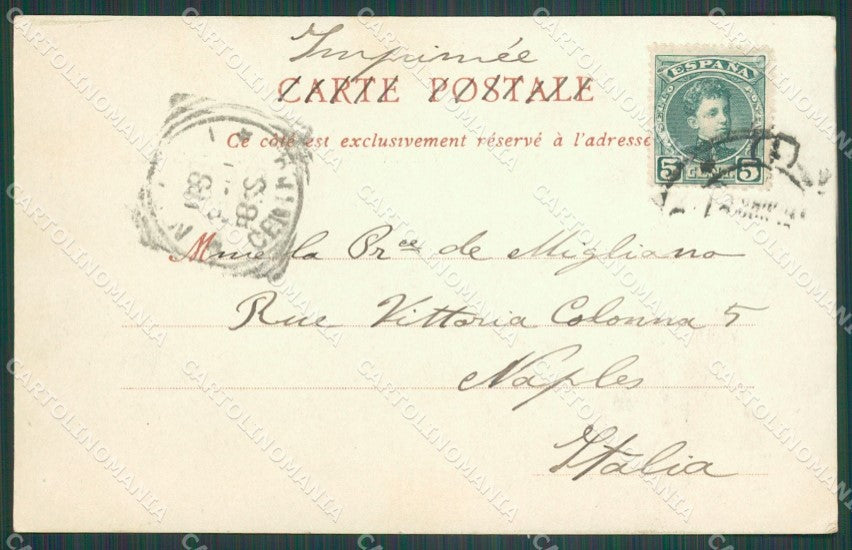 Imprimée
CARTE POSTALE
Ce côté est exclusivement réservé à l'adresse
ESPAÑA
5 5
CENTR
Mme la Prce de Migliano
Rue Vittoria Colonna 5
Naples
Italia
CARTOLINOMANIA